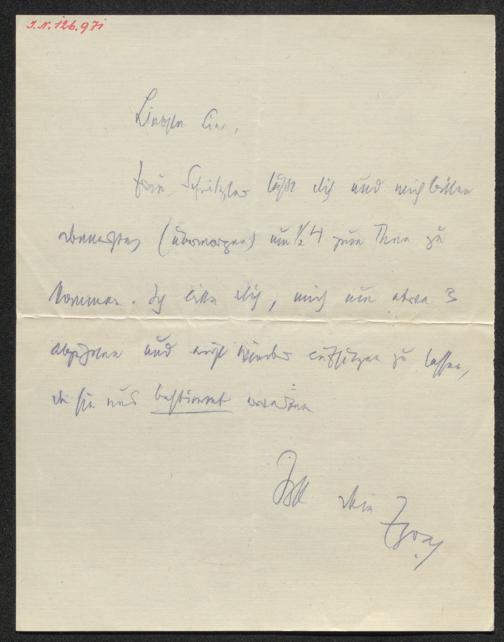 I.N. 126.971
Liebster
Frau Schnitzler läßt dich und mich bitten
Donnerstag (übermorgen) um ½ 4 zum Thee zu
kommen. Ich bitte dich, mich um etwa 3
abzuholen und nicht wieder zu lassen,
da sie uns bestimmt erwarten
dein